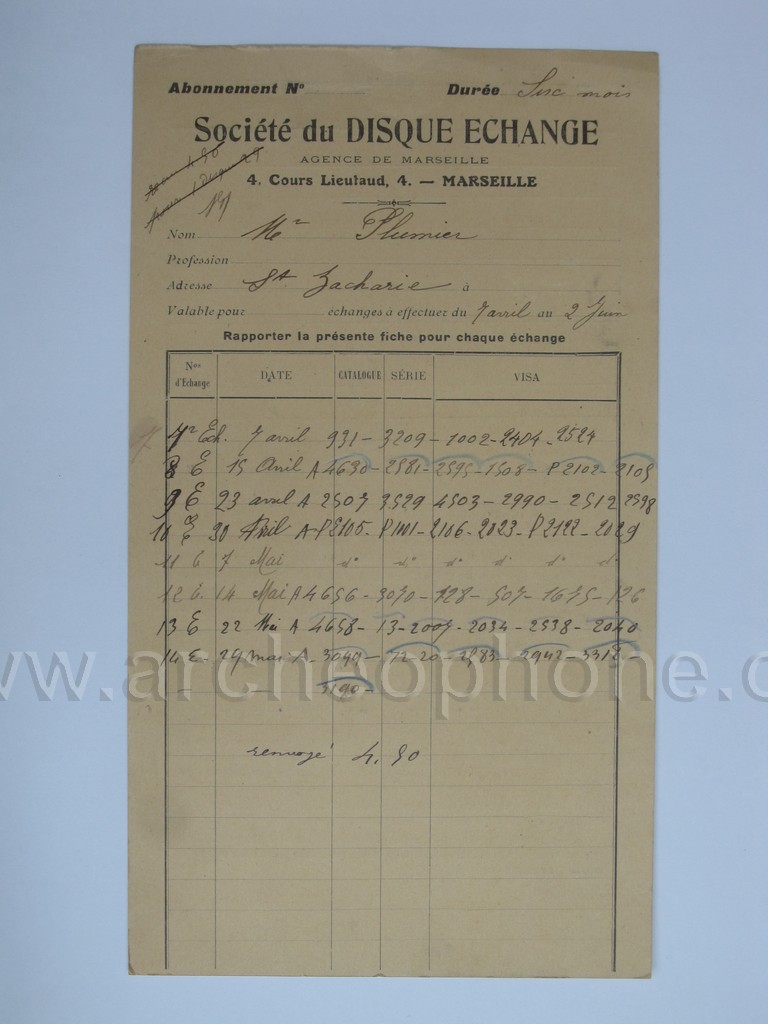 Abonnement N° Durée Six mois
Société du DISQUE ECHANGE
AGENCE DE MARSEILLE
4, Cours Lieutaud, 4. — MARSEILLE
Nom Mr Plumier
Profession
Adresse St Zacharie à
Valable pour échanges à effectuer du 7 avril au 2 Juin
Rapporter la présente fiche pour chaque échange
Nos d'Echange DATE CATALOGUE SÉRIE VISA
Ech. 7 avril 931 - 3209 - 1002 - 2404 - 2524
8 E 15 Avril A 4630 - 2581 - 2595 - 1508 - P2102 - 2105
9 E 23 avril A 2507 3529 4503 - 2990 - 2512 2598
10 E 30 Avril A - P2105 - P1101 - 2106 - 2023 - P2122 - 2029
11 E 7 Mai d° d° d° d° d° d°
12 E. 14 Mai A 4656 - 3070 - 128 - 507 - 1675 - 126
13 E 22 Mai A 4658 - 13 - 2007 - 2034 - 2538 - 2040
14 E - 29 mai A - 3049 - 72-20 - 2883 - 2942 - 3312 -
3190 -
4.50
www.archeophone.